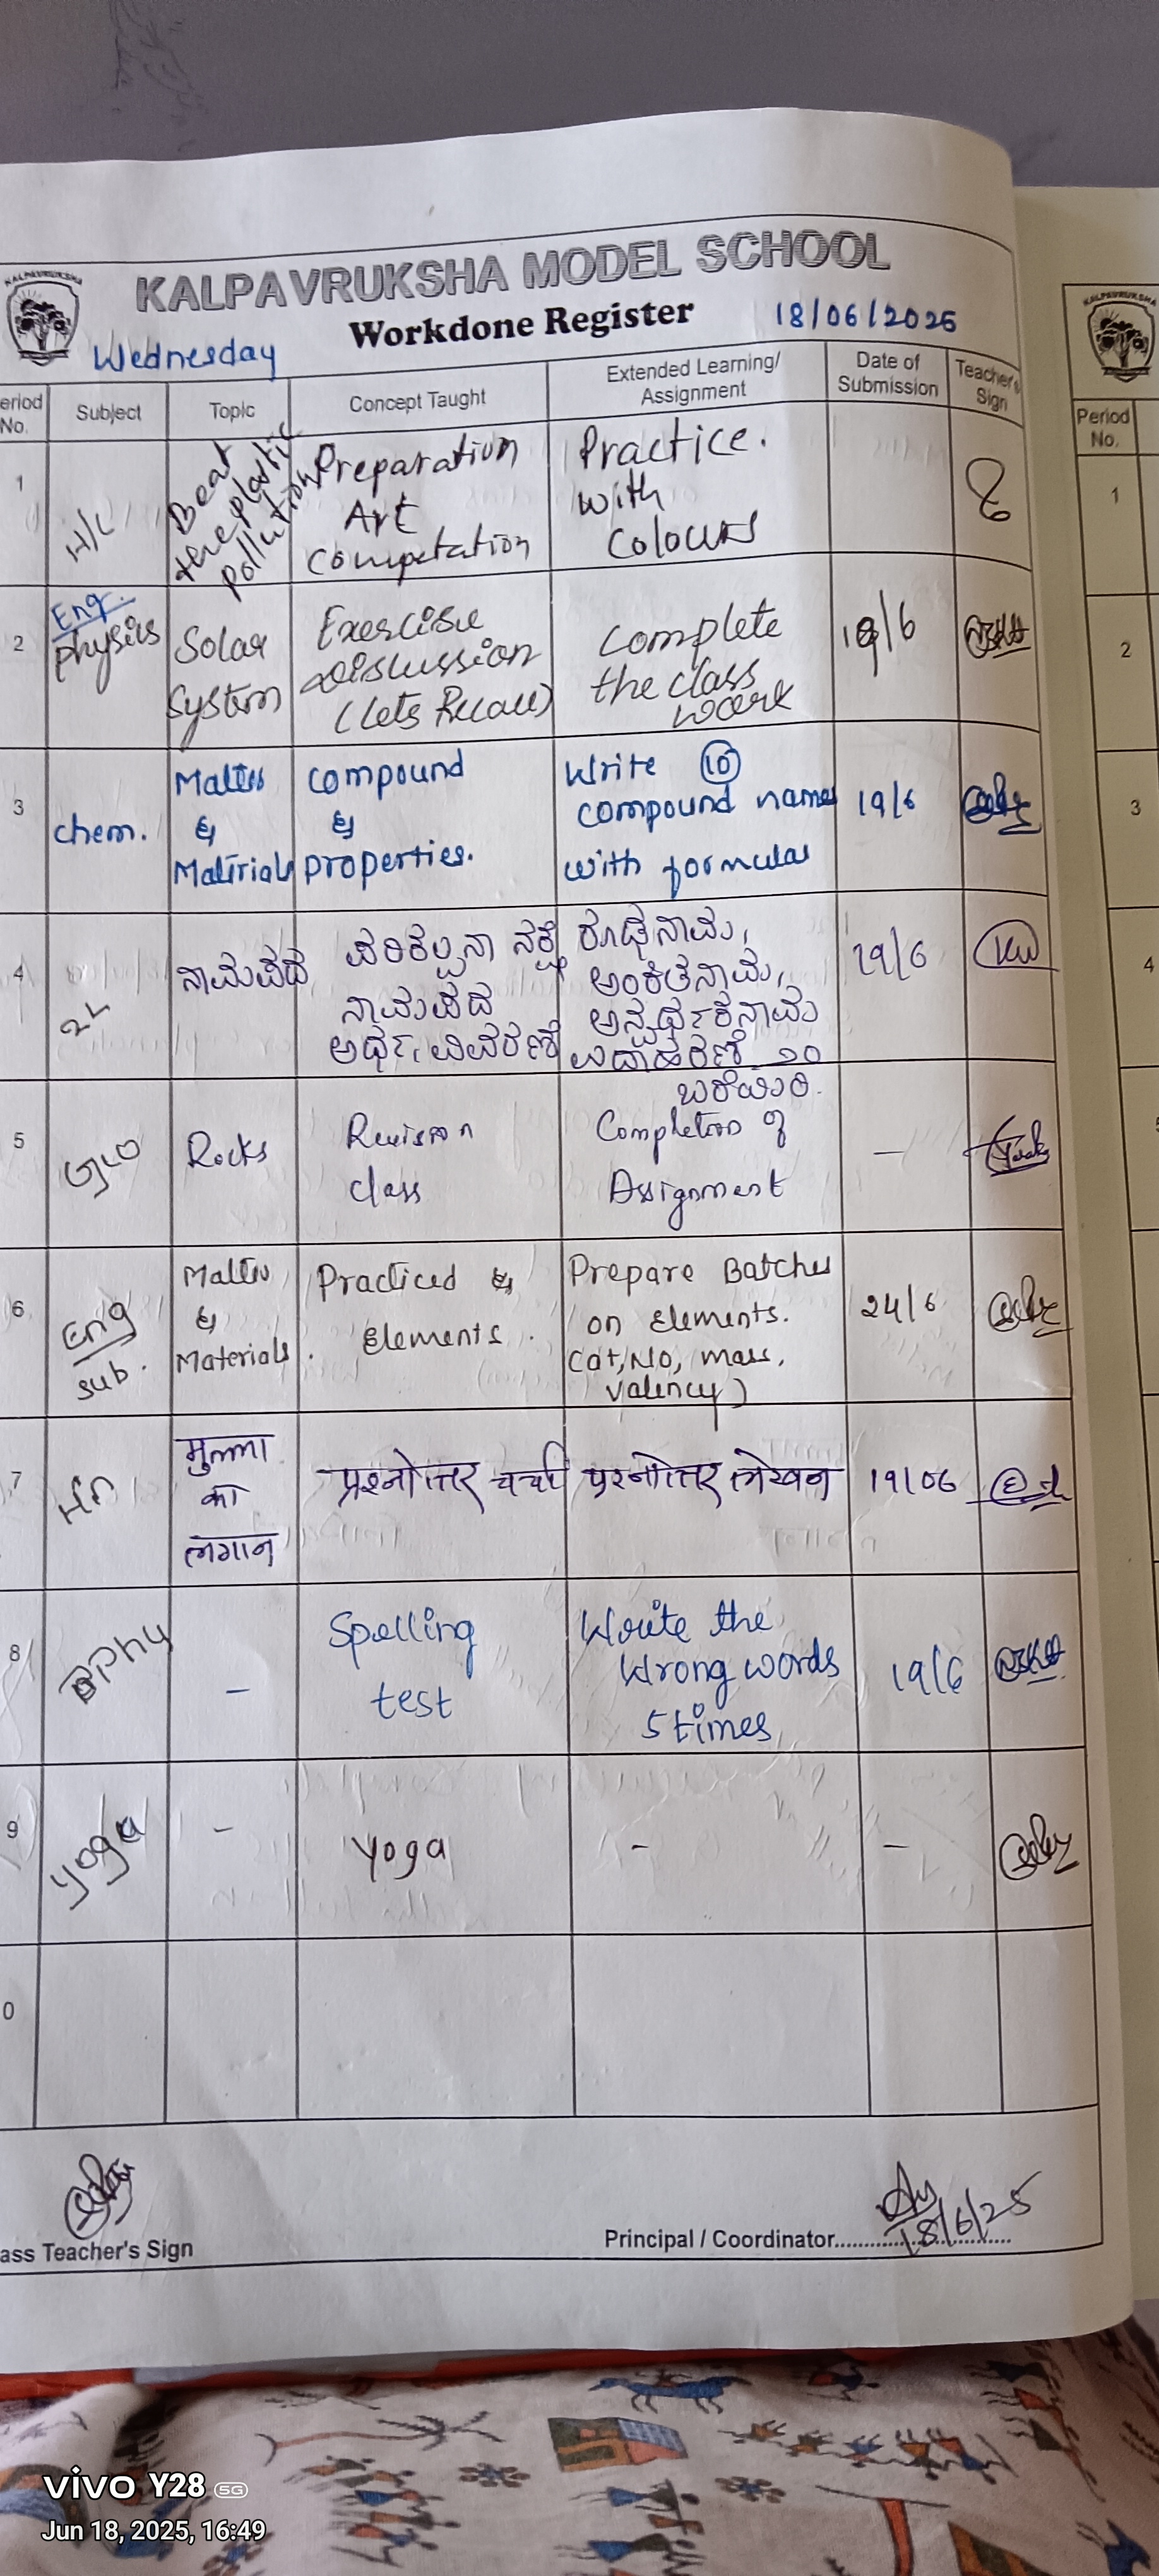 KALPAVRUKSHA
KALPAVRUKSHA MODEL SCHOOL
Workdone Register
18/06/2025
Wednesday
eriod No.
Subject
Topic
Concept Taught
Extended Learning/
Assignment
Date of
Submission
Teacher's
Sign
1
H/L
Beat
the plastic
pollution
Preparation
Art
Competation
Practice.
with
Colours
2
Eng.
physics
Solar
System
Exercise
Discussion
(Lets Recall)
Complete
the class
work
19/6
3
chem.
&
Compound
&
properties.
Write 10
compound names
with formulas
19/6
4
2L
ನಾಮಪದ
ಪರಿಕಲ್ಪನಾ ನಕ್ಷೆ
ನಾಮಪದ
ಅರ್ಥ, ವಿವರಣೆ
ರೂಢನಾಮ,
ಅಂಕಿತನಾಮ,
ಅನ್ವರ್ಥಕನಾಮ
ಉದಾಹರಣೆ ೨೦
ಬರೆಯಿರಿ.
19/6
5
Geo
Rocks
Revision
class
Completion of
Assignment
-
6
Eng
sub.
&
Materials.
Practiced &
Elements.
Prepare Batches
on Elements.
Cat, No, mass,
valency)
24/6
7
Hn
मुल्ला
का
लगान
प्रश्नोत्तर चर्चा
प्रश्नोत्तर लेखन
19/06
8
Phy
-
Spelling
test
Write the
Wrong words
5 times
19/6
9
yoga
-
yoga
-
-
0
ass Teacher's Sign
Principal / Coordinator
18/6/25
KALPAVRUKSHA
Period
No.
1
2
3
4
vivo Y28 5G
Jun 18, 2025, 16:49